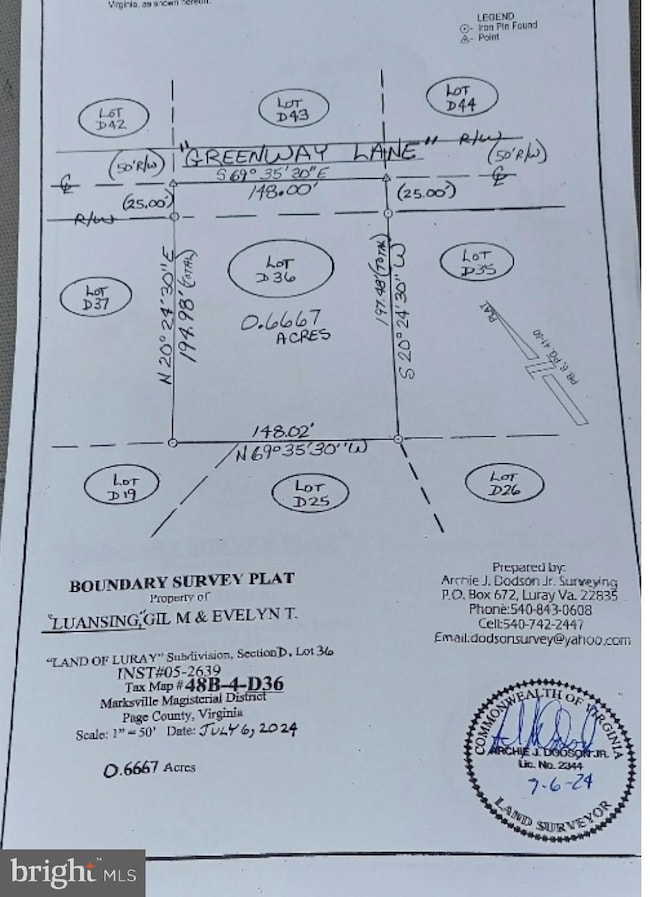 Virginia, as shown hereon.
LEGEND
- Iron Pin Found
- Point
LOT D42
LOT D43
LOT D44
"GREENWAY LANE"
R/W
(50'R/W)
(50'R/W)
S 69° 35' 30" E
148.00'
(25.00')
(25.00')
R/W
LOT D37
LOT D36
LOT D35
N 20° 24' 30" E
194.98' (TOTAL)
197.48' (TOTAL)
S 20° 24' 30" W
0.6667
ACRES
PLAT
PB. 6, PG. 41-50
148.02'
N 69° 35' 30" W
LOT D19
LOT D25
LOT D26
BOUNDARY SURVEY PLAT
Property of
"LUANSING," GIL M & EVELYN T.
"LAND OF LURAY" Subdivision, Section D, Lot 36
INST#05-2639
Tax Map # 48B-4-D36
Marksville Magisterial District
Page County, Virginia
Scale: 1" = 50' Date: JULY 6, 2024
0.6667 Acres
Prepared by:
Archie J. Dodson Jr. Surveying
P.O. Box 672, Luray Va. 22835
Phone:540-843-0608
Cell:540-742-2447
Email:dodsonsurvey@yahoo.com
COMMONWEALTH OF VIRGINIA
ARCHIE J. DODSON JR.
Lic. No. 2344
7-6-24
LAND SURVEYOR
bright MLS